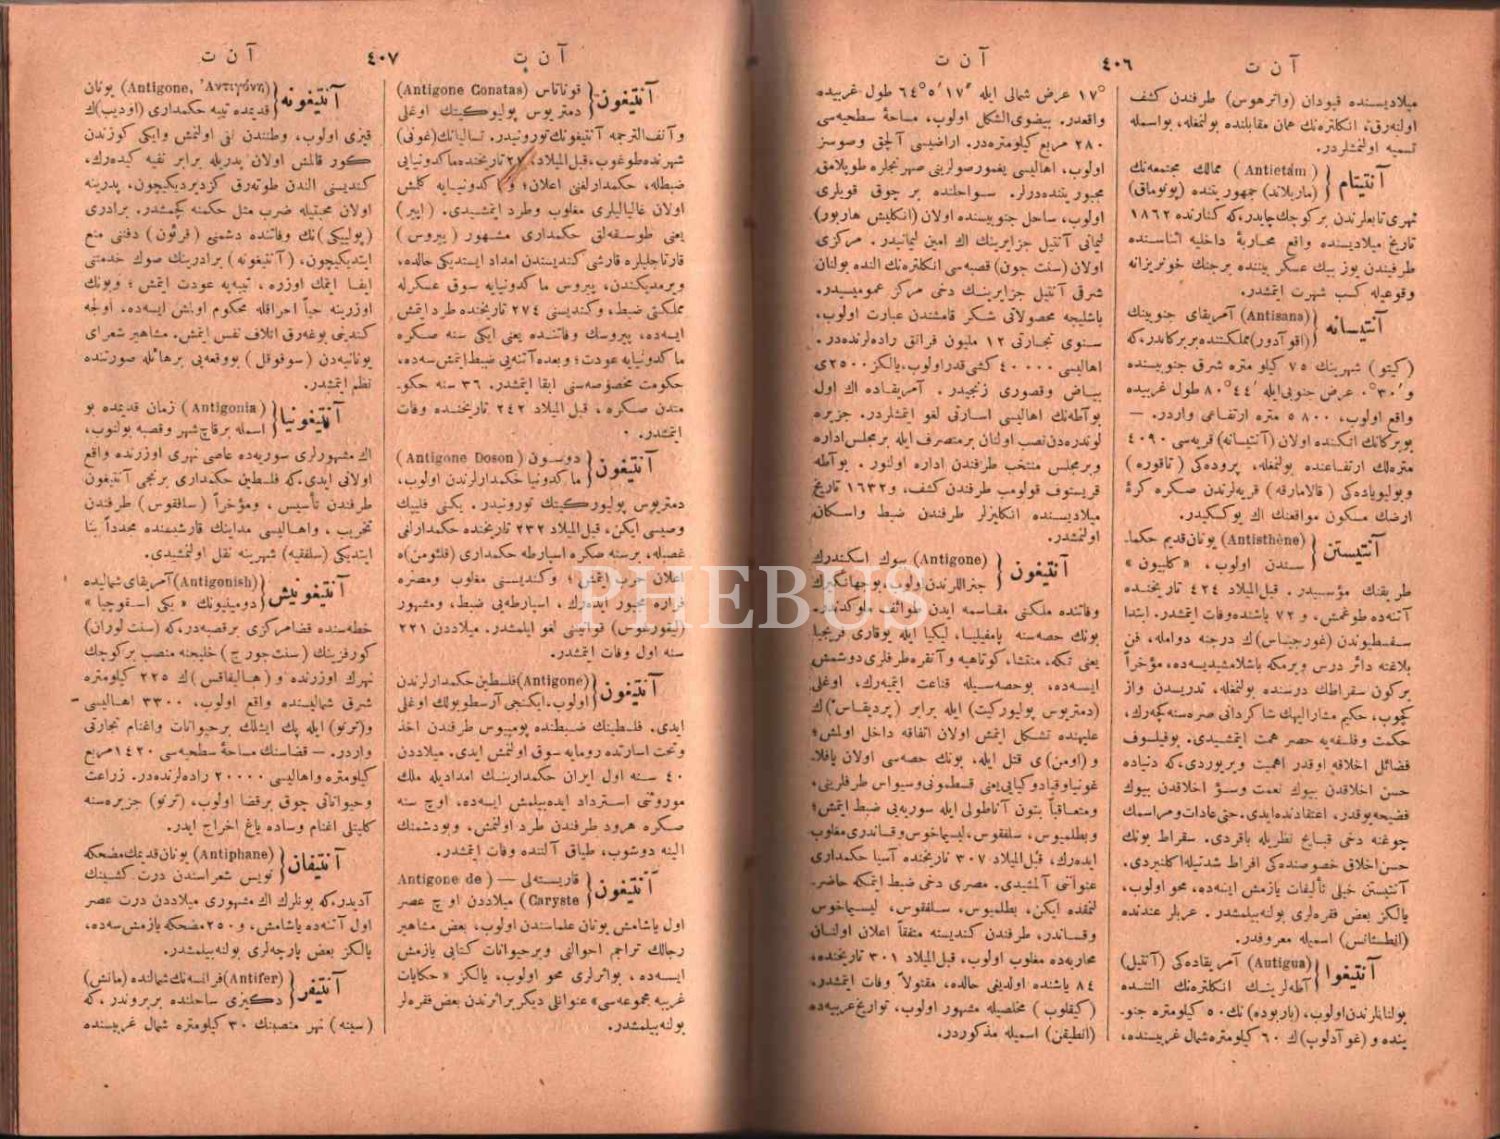 آ ن ت
٤٠٦
آ ن ت
میلادیسنده قپودان (واترهوس) طرفندن کشف
اولنه‌رق، انکلتره‌نك همان مقابلنده بولنمغله، بواسمله
تسمیه اولنمشلردر.
آنتیتام (Antietám) ممالك مجتمعه‌نك
(ماریلاند) جمهوریتنده (پوتوماق)
شهری تابعلرندن برکوچك چایدر، که کنارنده ١٨٦٢
تاریخ میلادیسنده واقع محاربهٔ داخلیه اثناسنده
طرفیندن یوز بیك عسکر بیننده برجنك خونریزانه
وقوعیله کسب شهرت ایتمشدر.
آنتیسانه (Antisana) آمریقای جنوبینك
(اقوآدور) مملکتنده بر برکاندر، که
(کیتو) شهرینك ٧٥ کیلو متره شرق جنوبیسنده
و ′٣٠ °٠ عرض جنوبی ایله ′٤٤ °٨٠ طول غربیده
واقع اولوب، ٥٨٠٠ متره ارتفاعی واردر. —
بوبرکانك اتکنده اولان (آنتیسانه) قریه‌سی ٤٠٩٠
متره‌لك ارتفاعنده بولنمغله، پروده‌کی (تاقوره)
وبولیویاده‌کی (قالامارقه) قریه‌لرندن صکره کرهٔ
ارضك مسکون مواقعنك اك یوکسکیدر.
آنتیستن (Antisthène) یونان قدیم حکما-
سندن اولوب، «کلبیون»
طریقنك مؤسسیدر. قبل المیلاد ٤٢٤ تاریخنده
آتنه‌ده طوغمش، و ٧٢ یاشنده وفات ایتمشدر. ابتدا
سفسطیوندن (غورجیاس) ك درجنه دوامله، فن
بلاغته دائر درس ویرمکه باشلامشیدیسه‌ده، مؤخراً
برکون سقراطك درسنده بولنمغله، تدریسدن واز
کچوب، حکیم مشارالیهك شاکردانی صره‌سنه کچه‌رك،
حکمت وفلسفه‌یه حصر همت ایتمشیدی. بوفیلسوف
فضائل اخلاقه اوقدر اهمیت ویریوردی، که دنیاده
حسن اخلاقدن بیوك نعمت وسؤ اخلاقدن بیوك
فضیحه یوقدر، اعتقادنده ایدی. حتی عادات ومراسمك
چوغنه دخی قبایح نظریله باقردی. سقراط بونك
حسن اخلاق خصوصنده‌کی افراط شدتیله اکلنیردی.
آنتیستن خیلی تألیفات یازمش ایسه‌ده، محو اولوب،
یالکز بعض فقره‌لری بولنه‌بیلمشدر. عربلر عندنده
(انطستانس) اسمیله معروفدر.
آنتیغوا (Antigua) آمریقاده‌کی (آنتیل)
آطه‌لرینك انکلتره‌نك التنده
بولنانلرندن اولوب، (باربوده) نك ٥٠ کیلومتره جنو-
بنده و (غوآدلوپ) ك ٦٠ کیلومتره شمال غربیسنده،
°١٧ عرض شمالی ایله ″١٧ ′٥ °٦٤ طول غربیده
واقعدر. بیضوی الشکل اولوب، مساحهٔ سطحیه‌سی
٢٨٠ مربع کیلومتره‌در. اراضیسی آلچق وصوسز
اولوب، اهالیسی یغمور سولرینی صهرنجلره طوپلامق
مجبوریتنده‌درلر. سواحلنده بر چوق قویلری
اولوب، ساحل جنوبیسنده اولان (انکلیش هاربور)
لیمانی آنتیل جزایرینك اك امین لیمانیدر. مرکزی
اولان (سنت جون) قصبه‌سی انکلتره‌نك النده بولنان
شرقی آنتیل جزایرینك دخی مرکز عمومیسیدر.
باشلیجه محصولاتی شکر قامشندن عبارت اولوب،
سنوی تجارتی ١٢ ملیون فرانق راده‌لرنده‌در.
اهالیسی ٤٠٠٠٠ کشی قدر اولوب، یالکز ٢٥٠٠ی
بیاض وقصوری زنجیدر. آمریقاده اك اول
بوآطه‌نك اهالیسی اسارتی لغو ایتمشلردر. جزیره
لوندره‌دن نصب اولنان برمتصرف ایله بر مجلس اداره
وبرمجلس منتخب طرفندن اداره اولنور. بوآطه
قریستوف قولومب طرفندن کشف، و ١٦٣٢ تاریخ
میلادیسنده انکلیزلر طرفندن ضبط واسکان
اولنمشدر.
آنتیغون (Antigone) سوك اسکندرك
جنراللرندن اولوب، بوجهانکیرك
وفاتنده ملکنی مقاسمه ایدن طوائف ملوکدندر.
بونك حصه‌سنه پامفیلیا، لیکیا ایله یوقاری فریجیا
یعنی تکه، منتشا، کوتاهیه وآنقره طرفلری دوشمش
ایسه‌ده، بوحصه‌سیله قناعت ایتمیه‌رك، اوغلی
(دمتریوس پولیورکیت) ایله برابر (پردیقاس) ك
علیهنده تشکل ایتمش اولان اتفاقه داخل اولمش؛
و (اومن) ی قتل ایله، بونك حصه‌سی اولان پافلا-
غونیا وقپادوکیایی یعنی قسطمونی وسیواس طرفلرینی،
ومتعاقباً بتون آناطولی ایله سوریه‌یی ضبط ایتمش؛
وبطلمیوس، سلفقوس، لیسیماخوس وقساندری مغلوب
ایده‌رك، قبل المیلاد ٣٠٧ تاریخنده آسیا حکمداری
عنواننی آلمشیدی. مصری دخی ضبط ایتمکه حاضر-
لنمقده ایکن، بطلمیوس، سلفقوس، لیسیماخوس
وقساندر، طرفندن کندیسنه متفقاً اعلان اولنان
محاربه‌ده مغلوب اولوب، قبل المیلاد ٣٠١ تاریخنده،
٨٤ یاشنده اولدیغی حالده، مقتولاً وفات ایتمشدر.
(کیقلوپ) مخلصیله مشهور اولوب، تواریخ عربیه‌ده
(انطیقن) اسمیله مذکوردر.
آ ن ت
٤٠٧
آ ن ت
آنتیغون قوناتاس (Antigone Conatas)
دمتریوس پولیورکیتك اوغلی
وآنف الترجمه آنتیغونك تورونیدر. تسالیانك (غونی)
شهرنده طوغوب، قبل المیلاد تاریخنده ماکدونیایی
ضبطله، حکمدارلغنی اعلان؛ و ماکدونیایه کلمش
اولان غالیالیلری مغلوب وطرد ایتمشیدی. (ایپر)
یعنی طوسقه‌لق حکمداری مشهور (پیروس)
قارتاجلیلره قارشی کندیسندن امداد ایستدیکی حالده،
ویرمدیکندن، پیروس ماکدونیایه سوق عسکرله
مملکتنی ضبط، وکندیسنی ٢٧٤ تاریخنده طرد ایتمش
ایسه‌ده، پیروسك وفاتنده یعنی ایکی سنه صکره
ماکدونیایه عودت؛ وبعده آتنه‌یی ضبط ایتمش سه‌ده،
حکومت مخصوصه‌سنی ابقا ایتمشدر. ٣٦ سنه حکو-
متدن صکره، قبل المیلاد ٢٤٢ تاریخنده وفات
ایتمشدر.
آنتیغون دوسون (Antigone Doson)
ماکدونیا حکمدارلرندن اولوب،
دمتریوس پولیورکیتك تورونیدر. یکنی فلیپك
وصیسی ایکن، قبل المیلاد ٢٣٢ تاریخنده حکمدارلغی
غصبله، برسنه صکره اسپارطه حکمداری (قلئومن) ه
اعلان حرب ایتمش؛ وکندیسنی مغلوب ومصره
فراره مجبور ایده‌رك، اسپارطه‌یی ضبط، ومشهور
(لیقورغوس) قوانیننی لغو ایلمشدر. میلاددن ٢٢١
سنه اول وفات ایتمشدر.
آنتیغون (Antigone) فلسطین حکمدارلرندن
اولوب، ایکنجی آرسطوبولك اوغلی
ایدی. فلسطینك ضبطنده پومپیوس طرفندن اخذ
وتحت اسارتده رومایه سوق اولنمش ایدی. میلاددن
٤٠ سنه اول ایران حکمدارینك امدادیله ملك
موروثنی استرداد ایده‌بیلمش ایسه‌ده، اوچ سنه
صکره هرود طرفندن طرد اولنمش، وبودشمنك
الینه دوشوب، طیاق آلتنده وفات ایتمشدر.
آنتیغون قاریسته‌لی — (Antigone de
Caryste) میلاددن اوچ عصر
اول یاشامش یونان علماسندن اولوب، بعض مشاهیر
رجالك تراجم احوالی وبرحیوانات کتابی یازمش
ایسه‌ده، بواثرلری محو اولوب، یالکز «حکایات
غریبه مجموعه‌سی» عنوانلی دیکر براثرندن بعض فقره‌لر
بولنه‌بیلمشدر.
آنتیغونه (Antigone, Ἀντιγόνη) یونان
قدیمده تیبه حکمداری (اودیپ) ك
قیزی اولوب، وطنندن نفی اولنمش وایکی کوزندن
کور قالمش اولان پدریله برابر نفیه کیده‌رك،
کندیسنی الندن طوته‌رق کزدیردیکیچون، پدرینه
اولان محبتیله ضرب مثل حکمنه کچمشدر. برادری
(پولینیکی) نك وفاتنده دشمنی (قرئون) دفنی منع
ایتدیکیچون، (آنتیغونه) برادرینك صوك خدمتنی
ایفا ایتمك اوزره، تیبه‌یه عودت ایتمش؛ وبونك
اوزرینه حیاً احراقله محکوم اولمش ایسه‌ده، اولجه
کندینی بوغه‌رق اتلاف نفس ایتمش. مشاهیر شعرای
یونانیه‌دن (سوفوقل) بووقعه‌یی برهائله صورتنده
نظم ایتمشدر.
آنتیغونیا (Antigonia) زمان قدیمده بو
اسمله برقاچ شهر وقصبه بولنوب،
اك مشهورلری سوریه‌ده عاصی نهری اوزرنده واقع
اولانی ایدی، که فلسطین حکمداری برنجی آنتیغون
طرفندن تأسیس، ومؤخراً (سلفقوس) طرفندن
تخریب، واهالیسی مداینك قارشیسنده مجدداً بنا
ایتدیکی (سلفقیه) شهرینه نقل اولنمشیدی.
آنتیغونیش (Antigonish) آمریقای شمالیده
دومینیونك «یکی اسقوچیا»
خطه‌سنده قضا مرکزی برقصبه‌در، که (سنت لوران)
کورفزینك (سنت جورج) خلیجنه منصب برکوچك
نهرك اوزرنده و (هالیفاقس) ك ٢٢٥ کیلومتره
شرق شمالیسنده واقع اولوب، ٣٣٠٠ اهالیسی
و (ترنو) ایله پك ایشلك برحیوانات واغنام تجارتی
واردر. — قضاسنك مساحهٔ سطحیه‌سی ١٤٢٠ مربع
کیلومتره واهالیسی ٢٠٠٠٠ راده‌لرنده‌در. زراعت
وحیواناتی چوق برقضا اولوب، (ترنو) جزیره‌سنه
کلیتلی اغنام وساده یاغ اخراج ایدر.
آنتیفان (Antiphane) یونان قدیمك مضحکه
نویس شعراسندن درت کشینك
آدیدر، که بونلرك اك مشهوری میلاددن درت عصر
اول آتنه‌ده یاشامش، و ٢٥٠ مضحکه یازمش سه‌ده،
یالکز بعض پارچه‌لری بولنه‌بیلمشدر.
آنتیفر (Antifer) فرانسه‌نك شمالنده (مانش)
دکیزی ساحلنده بر بروندر، که
(سینه) نهر منصبنك ٣٠ کیلومتره شمال غربیسنده
PHEBUS